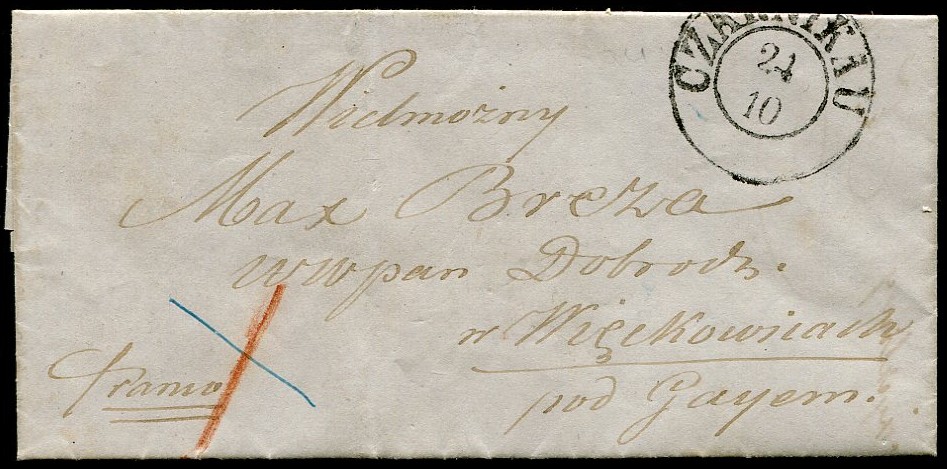 CZARNIKAU
24
10
Wielmożny
Max Breza
wwpan Dobrodz.
w Więckowicach
pod Gayem.
franco